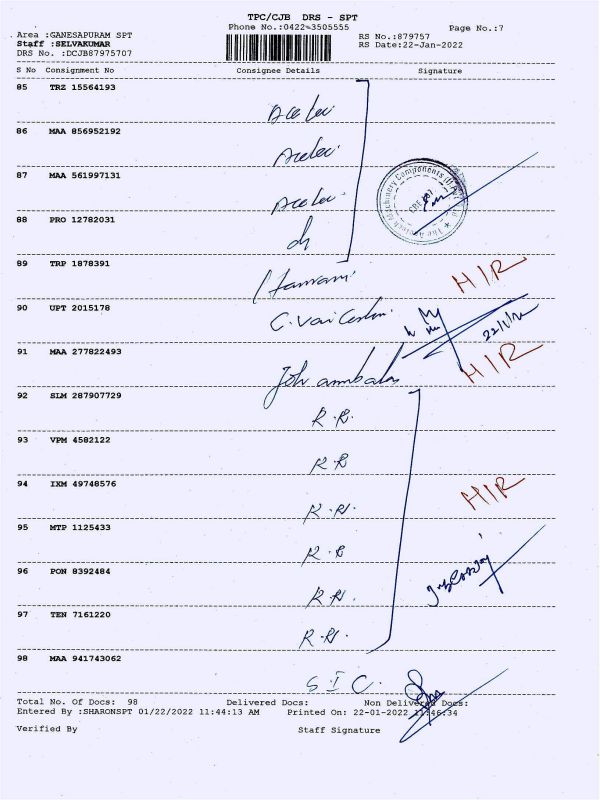 TPC/CJB DRS - SPT
Phone No.:0422-3505555
Page No.:7
Area :GANESAPURAM SPT
RS No.:879757
Staff :SELVAKUMAR
RS Date:22-Jan-2022
DRS No. :DCJB87975707
S No Consignment No Consignee Details Signature
85 TRZ 15564193
86 MAA 856952192
87 MAA 561997131
88 PRO 12782031
89 TRP 1878391
HIR
90 UPT 2015178
22/1/22
91 MAA 277822493
HIR
92 SLM 287907729
R.R.
93 VPM 4582122
R R
94 IXM 49748576
HIR
R.R.
95 MTP 1125433
R.R
96 PON 8392484
R.R.
97 TEN 7161220
R.R.
98 MAA 941743062
S.I.C.
Total No. Of Docs: 98 Delivered Docs: Non Delivered Docs:
Entered By :SHARONSPT 01/22/2022 11:44:13 AM Printed On: 22-01-2022 11:46:34
Verified By Staff Signature